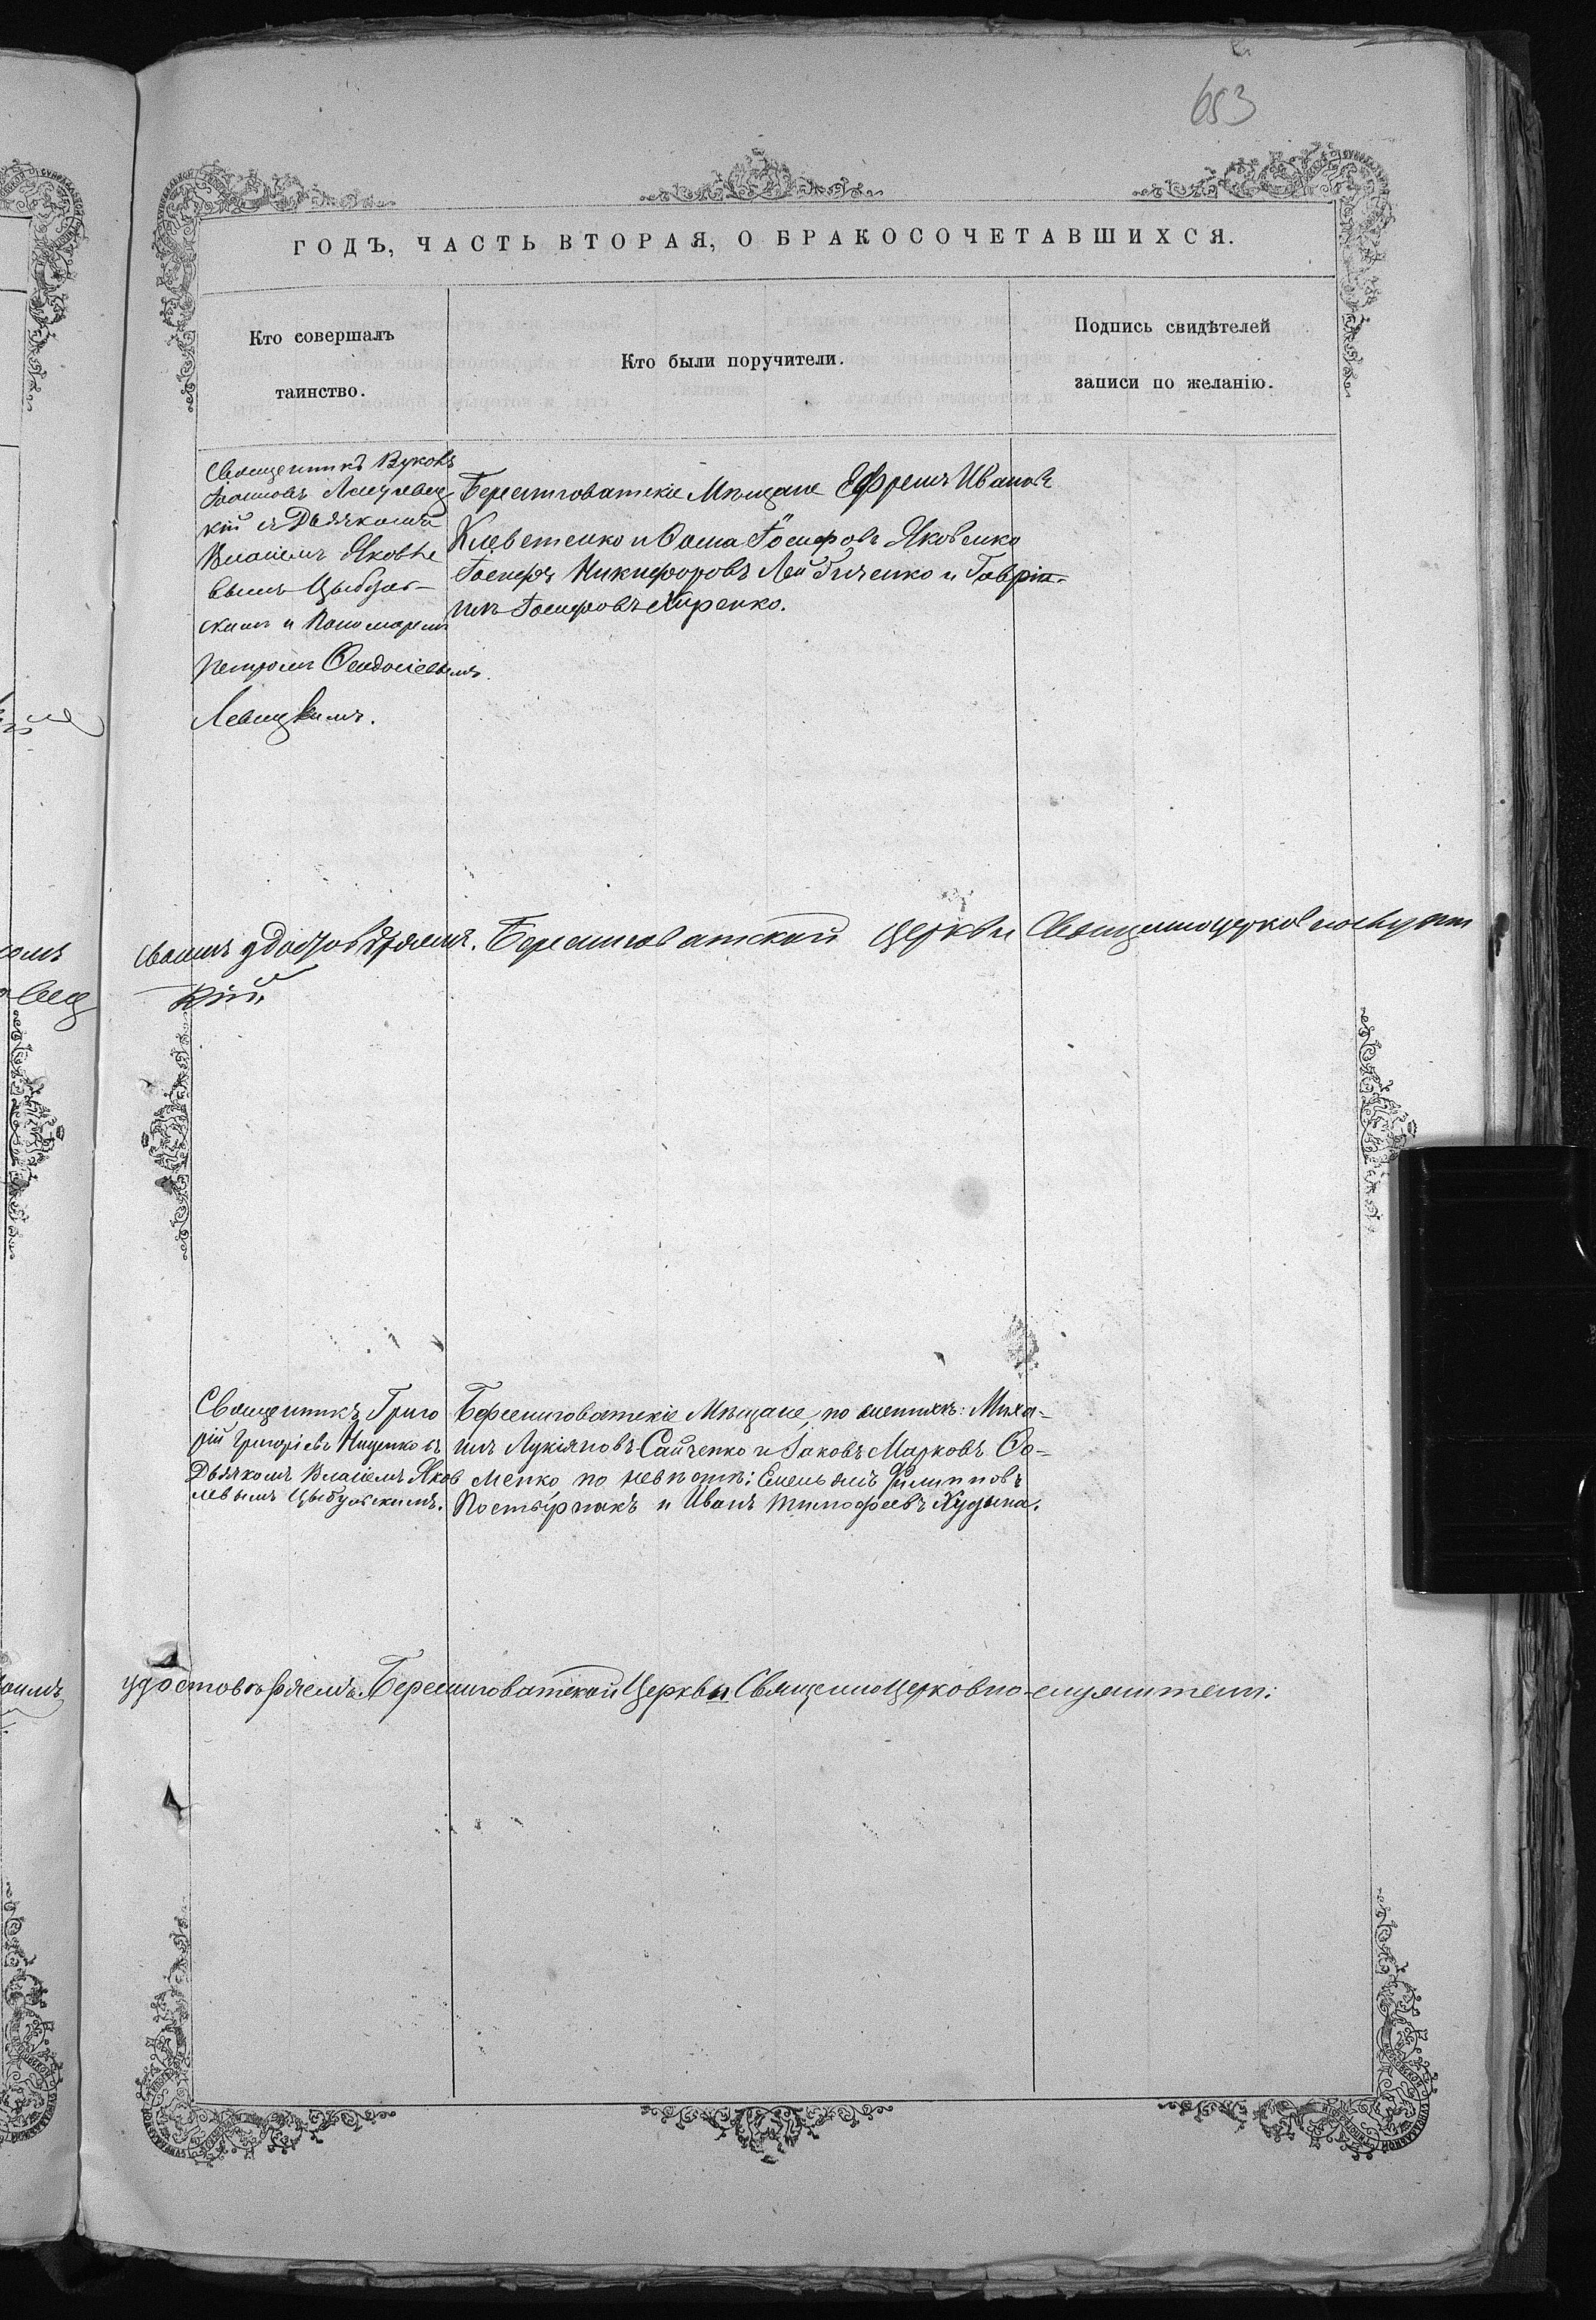 653
ГОДЪ, ЧАСТЬ ВТОРАЯ, О БРАКОСОЧЕТАВШИХСЯ.
Кто совершалъ
таинство.
Кто были поручители.
Подпись свидѣтелей
записи по желанію.
Священникъ Вуколъ
Іоанновъ
кій съ Дьячкомъ
Власіемъ Яковле
вымъ Цыбуль-
скимъ и Пономаремъ
Петромъ Ѳеодосіевымъ
Левицкимъ.
Берестговатскіе Мѣщане Ефремъ Ивановъ
и Ѳома Іосифовъ Яковенко
Іосифъ Никифоровъ и Гаврі-
илъ Іосифовъ Киренко.
удостовѣряемъ. Берестговатской Церкви
кій
Священникъ Григо
рій Григоріевъ Ищенко съ
Дьячкомъ Власіемъ Яков
левымъ Цыбульскимъ.
Берестговатскіе Мѣщане, по женихѣ: Миха-
илъ Лукіяновъ Сайченко и Іаковъ Марковъ Ѳо-
менко по невѣстѣ: Емельянъ Филипповъ
и Иванъ Тимофеевъ Худына.
удостовѣряемъ. Берестговатской Церкви Священноцерковно-служители: